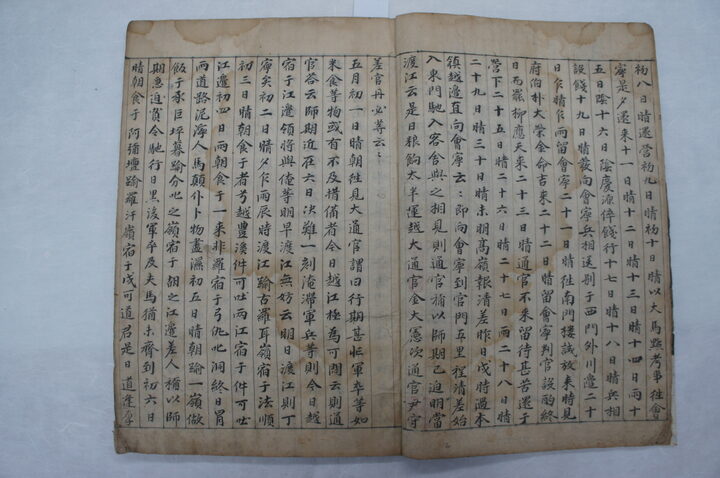 初八日晴還營初九日晴初十日晴以大馬點考事往會
寧是夕還來十一日晴十二日晴十三日晴十四日雨十
五日陰十六日陰慶源倅餞行十七日晴十八日晴兵相
設餞十九日晴發向會寧兵相送別于西門外川邊二十
日乍晴乍雨留會寧二十一日晴往南門樓試放來時見
府伯朴大榮金命吉來二十二日晴留會寧判官設酌終
日而罷柳應天來二十三日晴通官不來留待甚苦還于
營下二十五日晴二十六日晴二十七日雨二十八日晴
二十九日晴三十日晴未明高嶺報淸差昨日戌時過本
鎭越邊直向會寧云云即向會寧到官門五里程淸差始
入來門馳入客舍與之相見則通官補以師期已迫明當
渡江云是日粮餉太半運越大通官金大憲次通官尹守
差官丹必等云云
五月初一日晴朝往見大通官謂曰行期甚忙軍卒等如
米食等物或有不及措備者今日越江極爲可悶云則通
官答云師期近在六日決難一刻淹滯軍兵等則今日越
宿于江邊領將與俺等明早渡江無妨云明日渡江則丁
寧矣初二日晴夕乍雨辰時渡江踰古羅耳嶺宿于法順
初三日晴朝食于者兮越豊溪件可吐兩江宿于件可吐
江邊初四日雨朝食于一來非羅宿于弓仇叱洞終日冒
雨道路泥濘人馬顚仆卜物盡濕初五日晴朝踰一嶺倣
飯于家巨坪暮踰分叱之嶺宿于胡之江邊差人補以師
期急迫責令馳行日黑後軍卒及夫馬猶未齊到初六日
晴朝食于阿彌壇踰羅汗嶺宿于戍可道君是日道逢厚